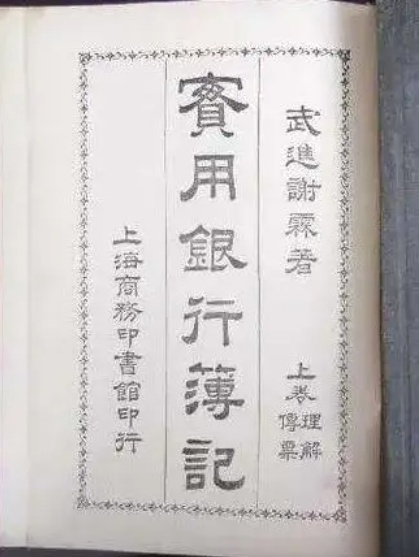 武進謝霖著
上卷 理解
傳票
實用銀行簿記
上海商務印書館印行